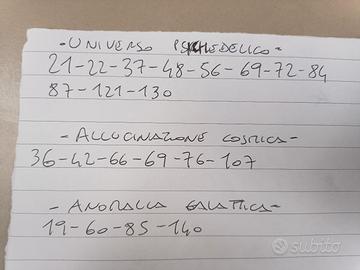 - UNIVERSO PSICHEDELICO -
21-22-37-48-56-69-72-84
87-121-130
- ALLUCINAZIONE COSMICA -
36-42-66-69-76-107
- ANOMALIA GALATTICA -
19-60-85-140
subito